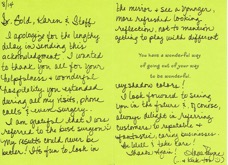 8/14
Dr. Gold, Karen & Staff,
I apologize for the lengthy
delay in sending this
acknowledgment. I wanted
to thank you all for your
helpfulness & wonderful
hospitality you extended
during all my visits, phone
calls & even surgery.
I am grateful that I was
referred to the best surgeon!
My results could never be
better! It's fun to look in
the mirror & see a younger,
more refreshed looking
reflection, not to mention
getting to play with different
You have a wonderful
way of going out of your way
to be wonderful
eyeshadow colors!
I look forward to seeing
you in the future & of course,
always delight in referring
customers to reputable &
fantastic, caring businesses.
Be well & take care!
Thanks again!